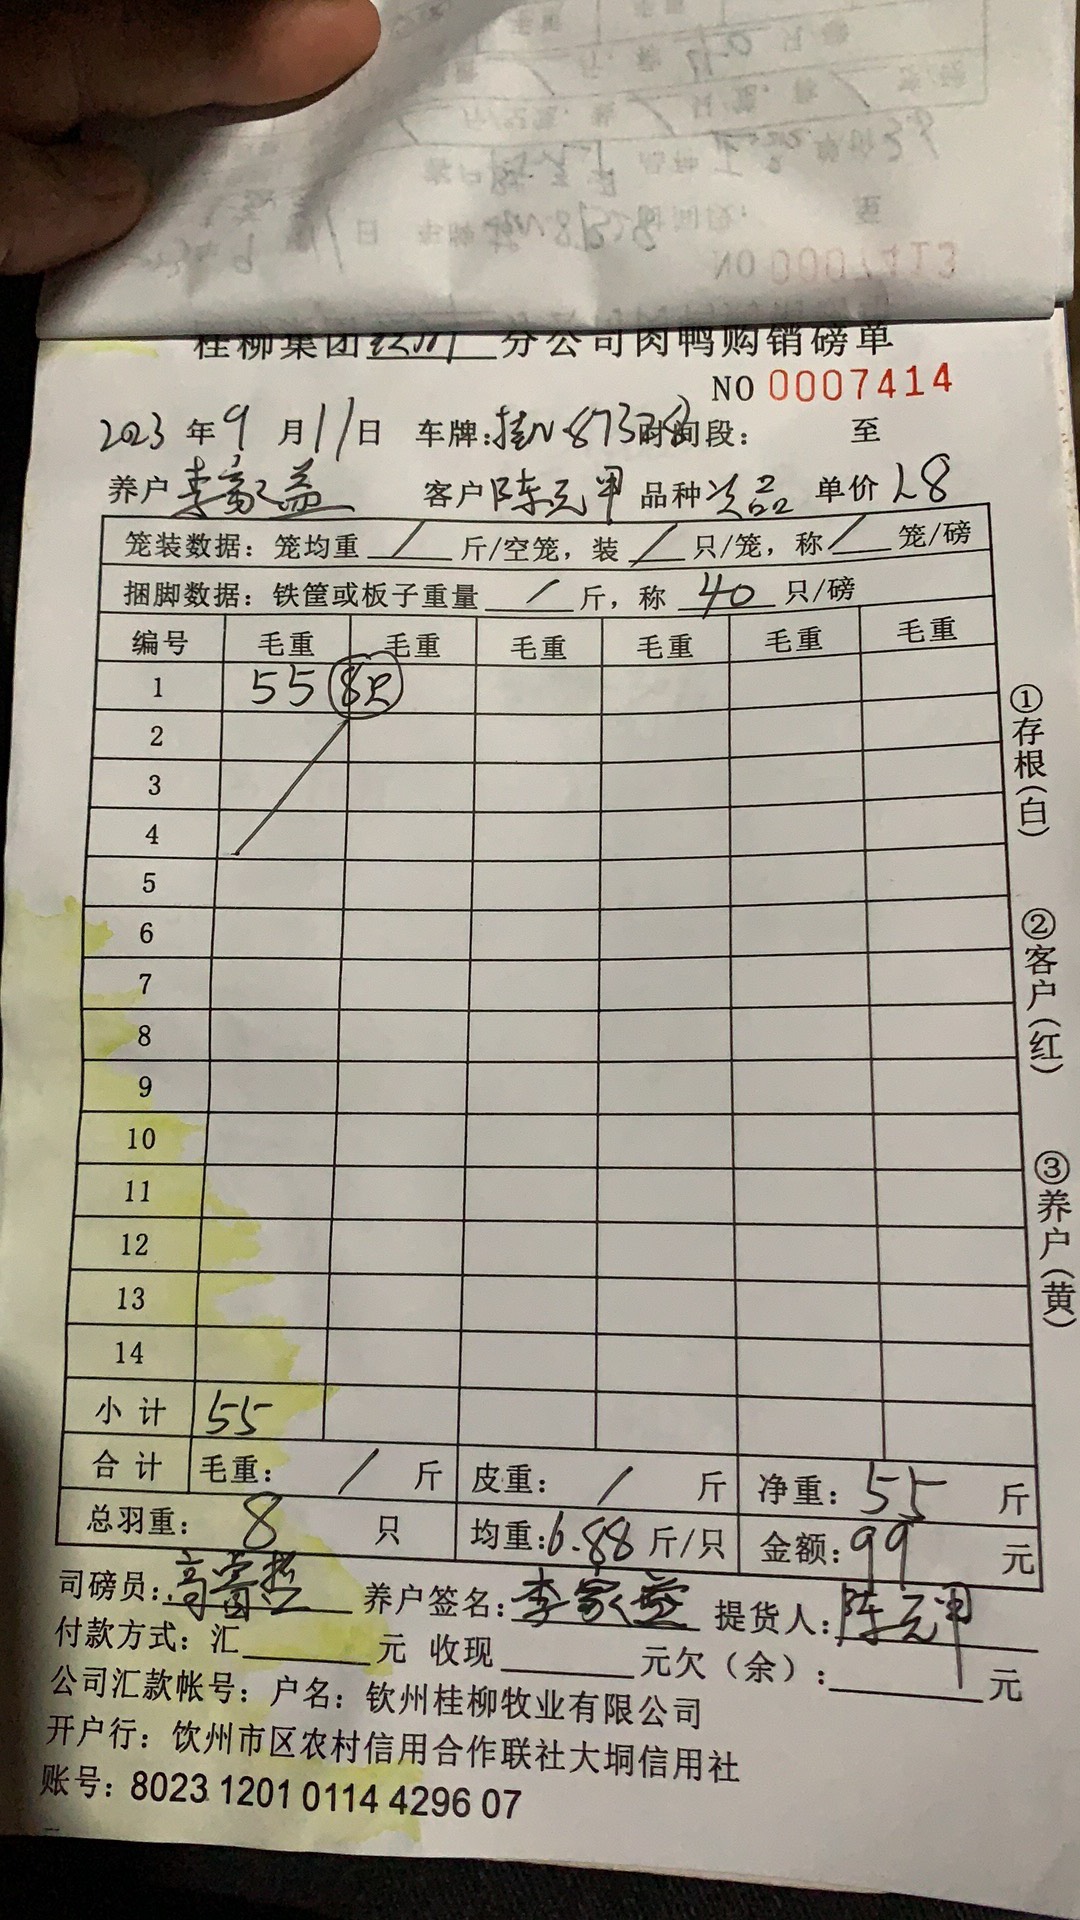 桂柳集团钦州分公司肉鸭购销磅单
NO 0007414
2023年9月11日 车牌:桂N·873 时间段: 至
养户 李家益 客户 陈元甲 品种 次品 单价 1.8
笼装数据: 笼均重 / 斤/空笼, 装 / 只/笼, 称 / 笼/磅
捆脚数据: 铁筐或板子重量 / 斤, 称 40 只/磅
编号 毛重 毛重 毛重 毛重 毛重 毛重
1 55 8只
2
3
4
5
6
7
8
9
10
11
12
13
14
小计 55
合计 毛重: / 斤 皮重: / 斤 净重: 55 斤
总羽重: 8 只 均重: 6.88 斤/只 金额: 99 元
司磅员: 养户签名: 李家益 提货人: 陈元甲
付款方式: 汇 元 收现 元欠(余): 元
公司汇款帐号: 户名: 钦州桂柳牧业有限公司
开户行: 钦州市区农村信用合作联社大垌信用社
账号: 8023 1201 0114 4296 07
①存根(白)
②客户(红)
③养户(黄)
NO 0007413